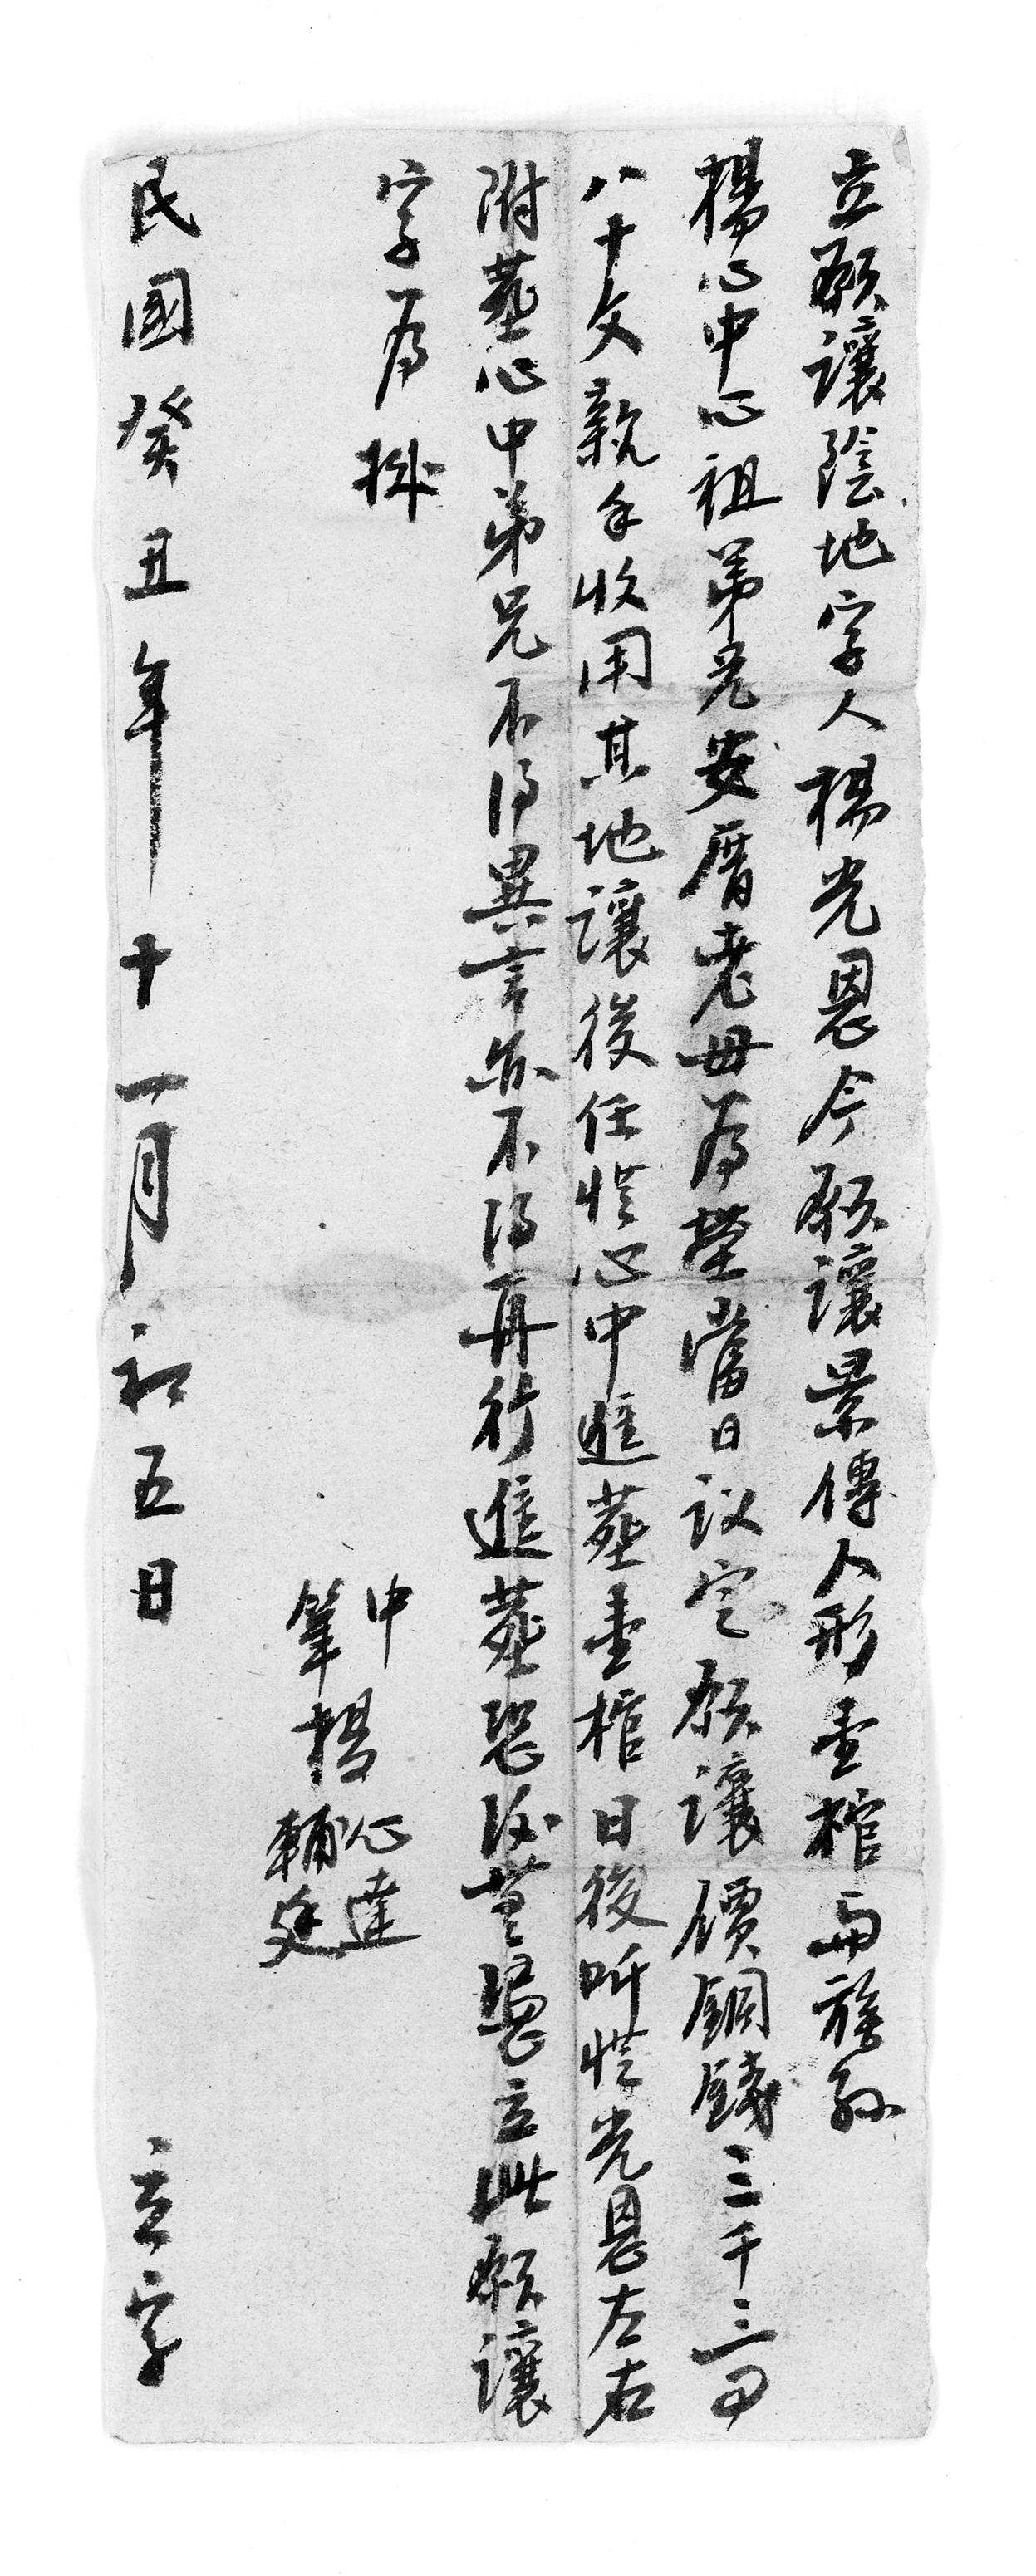 立願讓陰地字人楊光恩今願讓景傳人形壹棺與族孫
楊心中心祖弟兄安厝老母為塋當日议定願讓價銅錢三千三百
八十文親手收用其地讓後任憑心中進葬壹棺日後听憑光恩左右
附葬心中弟兄不得異言亦不得再行進葬恐後無憑立此願讓
字為據
中
筆楊心達
輔廷
民國癸丑年十一月初五日 立字